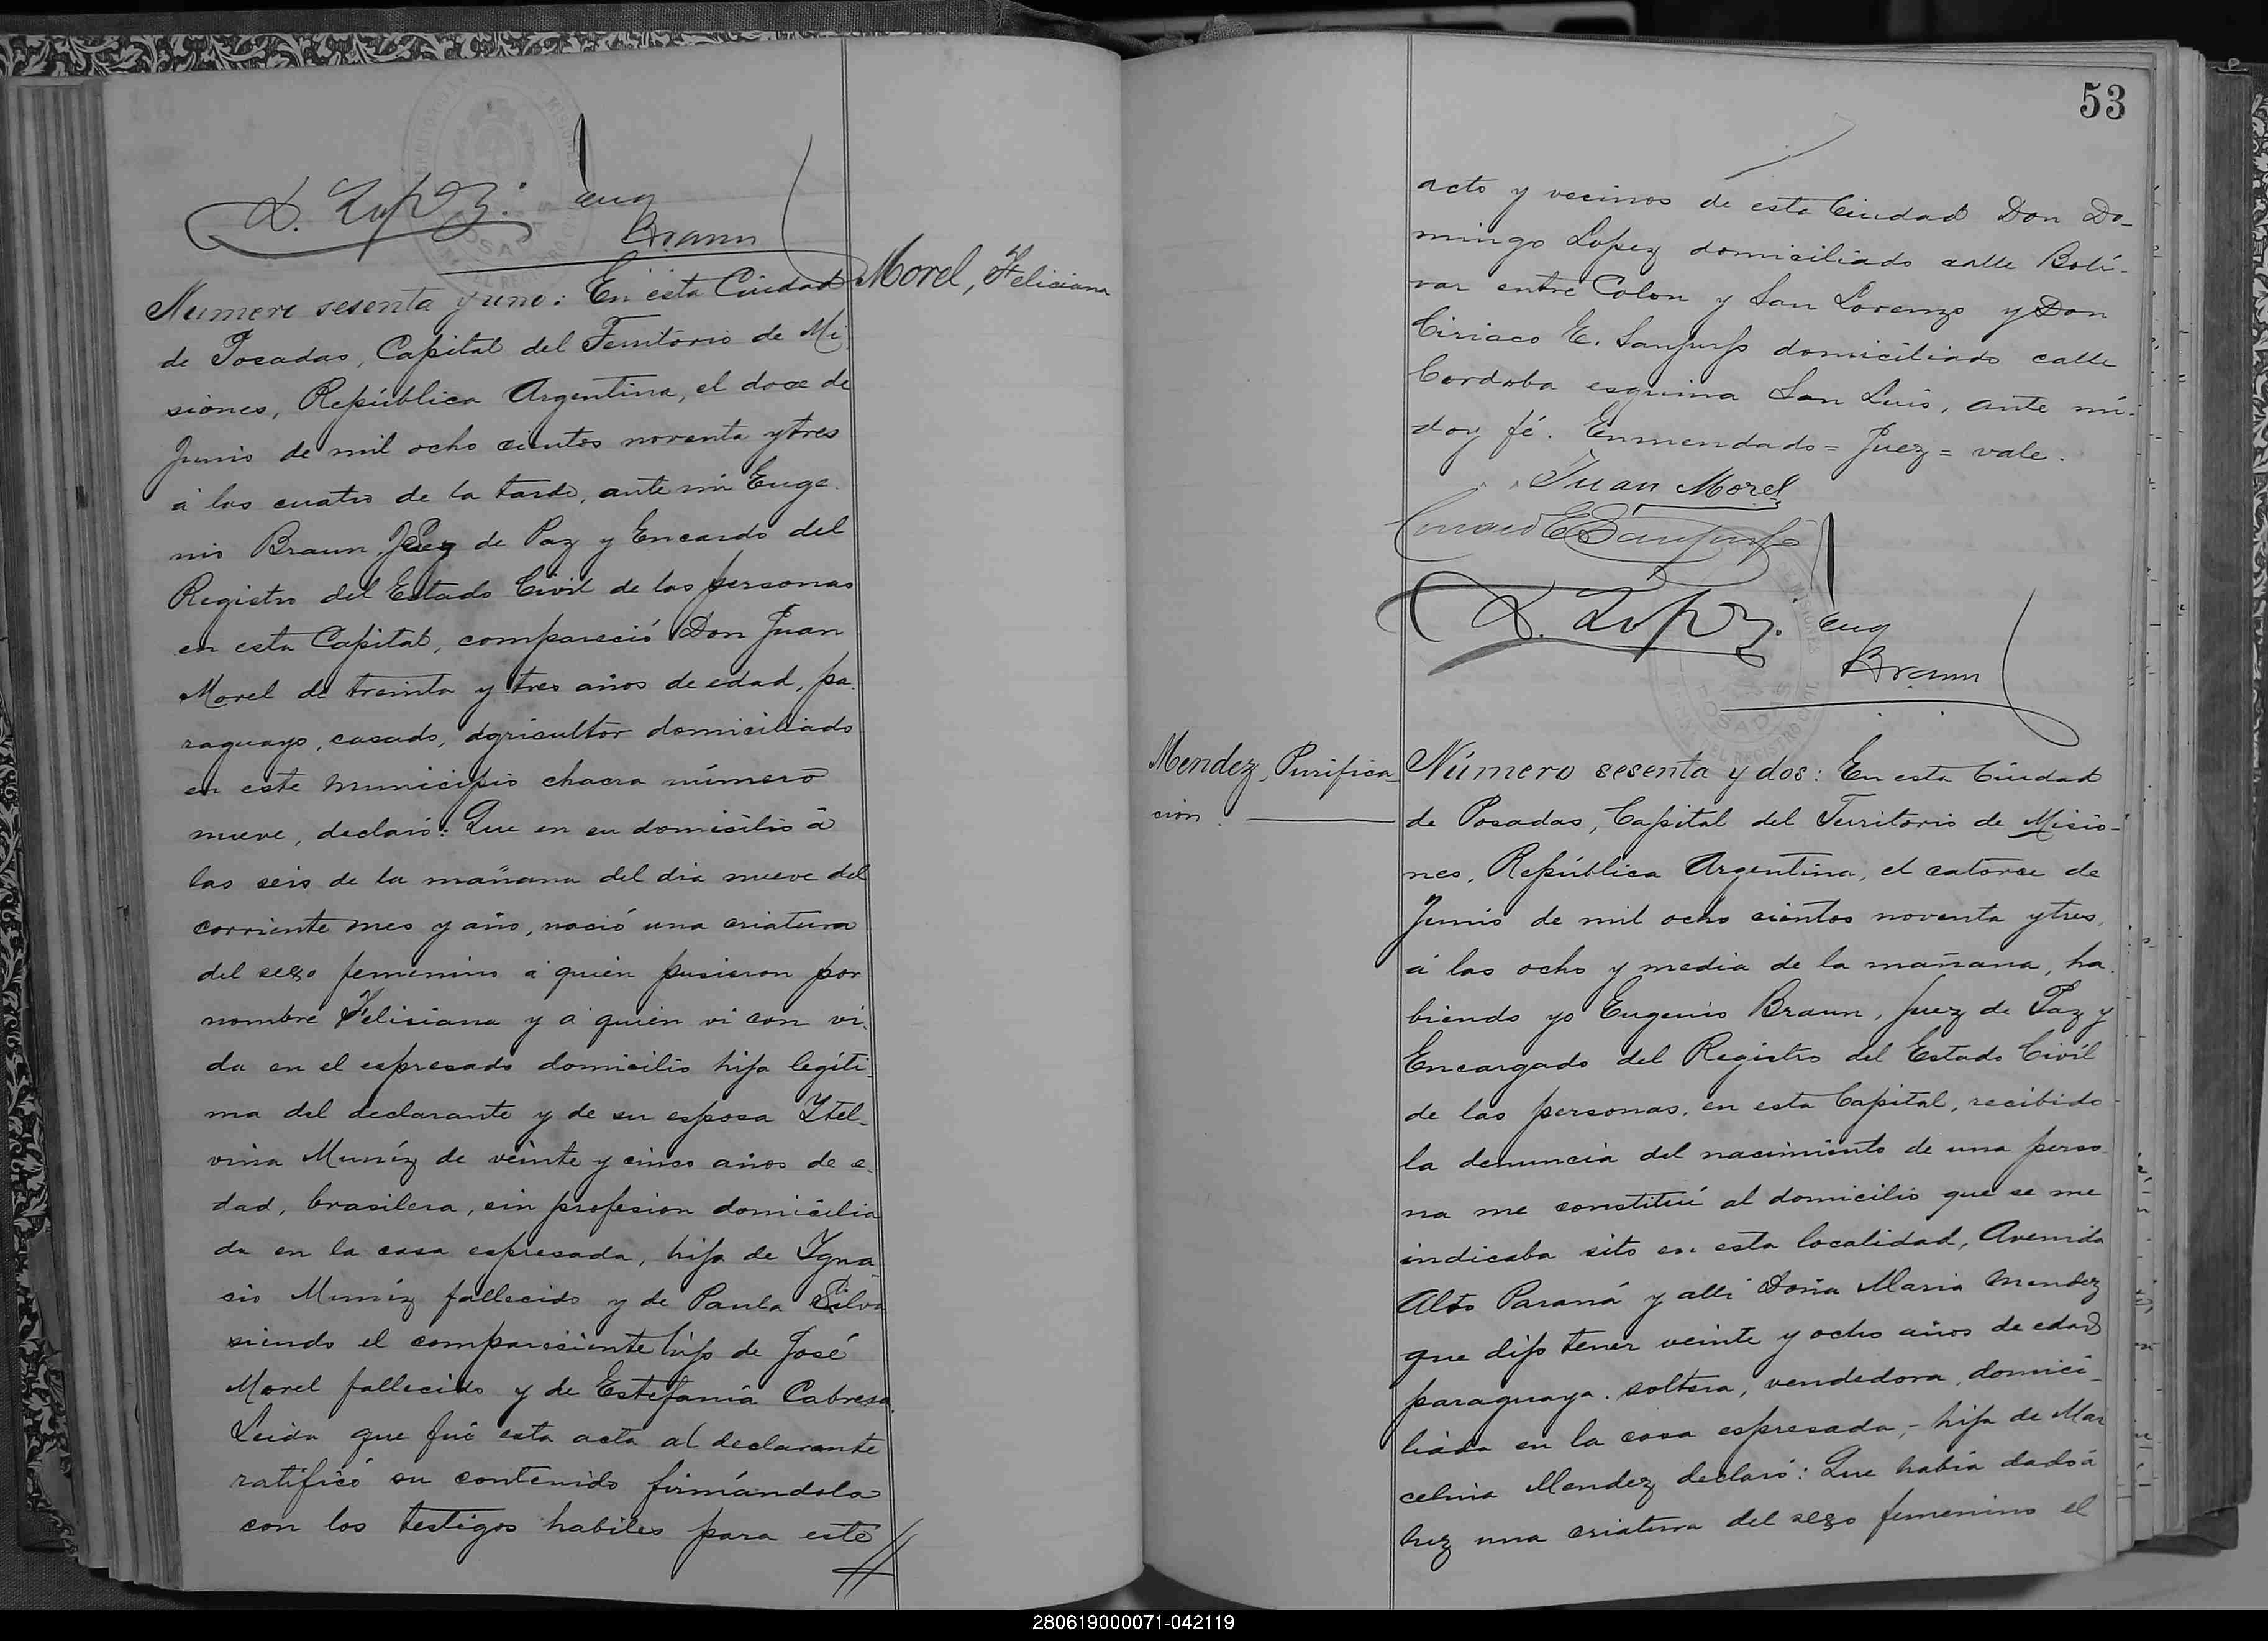 D. Lopez. Eug
Braun
Morel, Feliciana
Numero sesenta y uno: En esta Ciudad
de Posadas, Capital del Territorio de Mi
siones, República Argentina, el doce de
Junio de mil ocho cientos noventa y tres
á las cuatro de la tarde, ante mi Euge
nio Braun, Juez de Paz y Encardo del
Registro del Estado Civil de las personas
en esta Capital, compareció Don Juan
Morel de treinta y tres años de edad, pa
raguayo, casado, agricultor domiciliado
en este Municipio chacra número
nueve, declaró: Que en su domicilio á
las seis de la mañana del dia nueve del
corriente mes y año, nació una criatura
del sexo femenino á quién pusieron por
nombre Felisiana y á quién vi con vi.
da en el espresado domicilio hija legíti
ma del declarante y de su esposa Ytel-
vina Muníz de veinte y cinco años de e.
dad, brasilera, sin profesion domicilia
da en la casa espresada, hija de Ygna
cio Muníz fallecido y de Paula Silva
siendo el compareciente hijo de José
Morel fallecido y de Estefanía Cabrera.
Leida que fué esta acta al declarante
ratificó su contenido firmándola
con los testigos habiles para este
53
acto y vecinos de esta Ciudad Don Do-
mingo Lopez domiciliado calle Bolí-
var entre Colon y San Lorenzo y Don
Ciriaco E. Sanjurjo domiciliado calle
Cordoba esquina San Luis, ante mí.
doy fé. Enmendado = Juez = vale.
Juan Morel
Ciriaco E Sanjurjo
D. Lopez. Eug
Braun
Mendez, Purifica
cion.
Número sesenta y dos: En esta Ciudad
de Posadas, Capital del Territorio de Misio-
nes, República Argentina, el catorce de
Junio de mil ocho cientos noventa y tres,
á las ocho y media de la mañana, ha
biendo yo Eugenio Braun, Juez de Paz y
Encargado del Registro del Estado Civil
de las personas, en esta Capital, recibido
la denuncia del nacimiento de una perso
na me constituí al domicilio que se me
indicaba sito en esta localidad, Avenida
Alto Paraná y allí Doña Maria Mendez
que dijo tener veinte y ocho años de edad
paraguaya. soltera, vendedora, domici-
liada en la casa espresada, - hija de Mar
celina Mendez declaró: Que habia dado á
luz una criatura del sexo femenino el
280619000071-042119